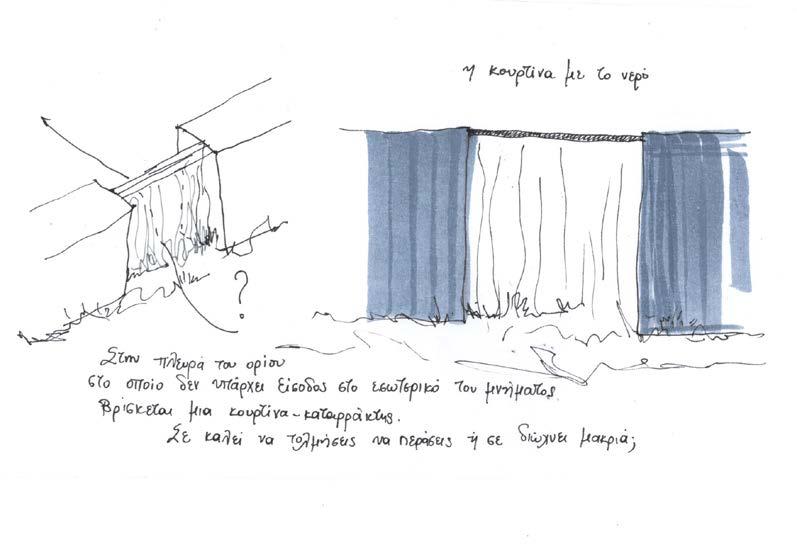 η κουρτίνα με το νερό
?
Στην πλευρά του ορίου
στο οποίο δεν υπάρχει είσοδος στο εσωτερικό του μνήματος
Βρίσκεται μια κουρτίνα-καταρράκτης.
Σε καλεί να τολμήσεις να περάσεις ή σε διώχνει μακριά;